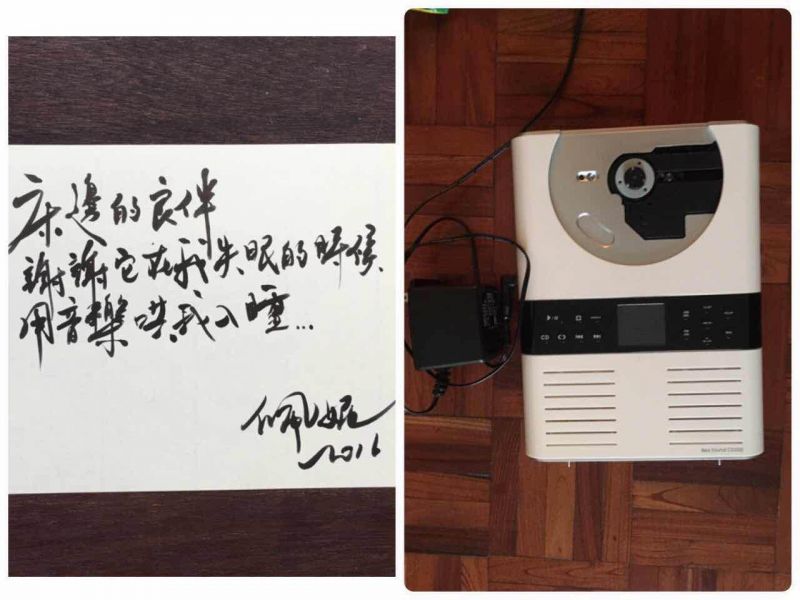 床邊的良伴
謝謝它在我失眠的時候
用音樂哄我入睡...
佩妮
2016
CD